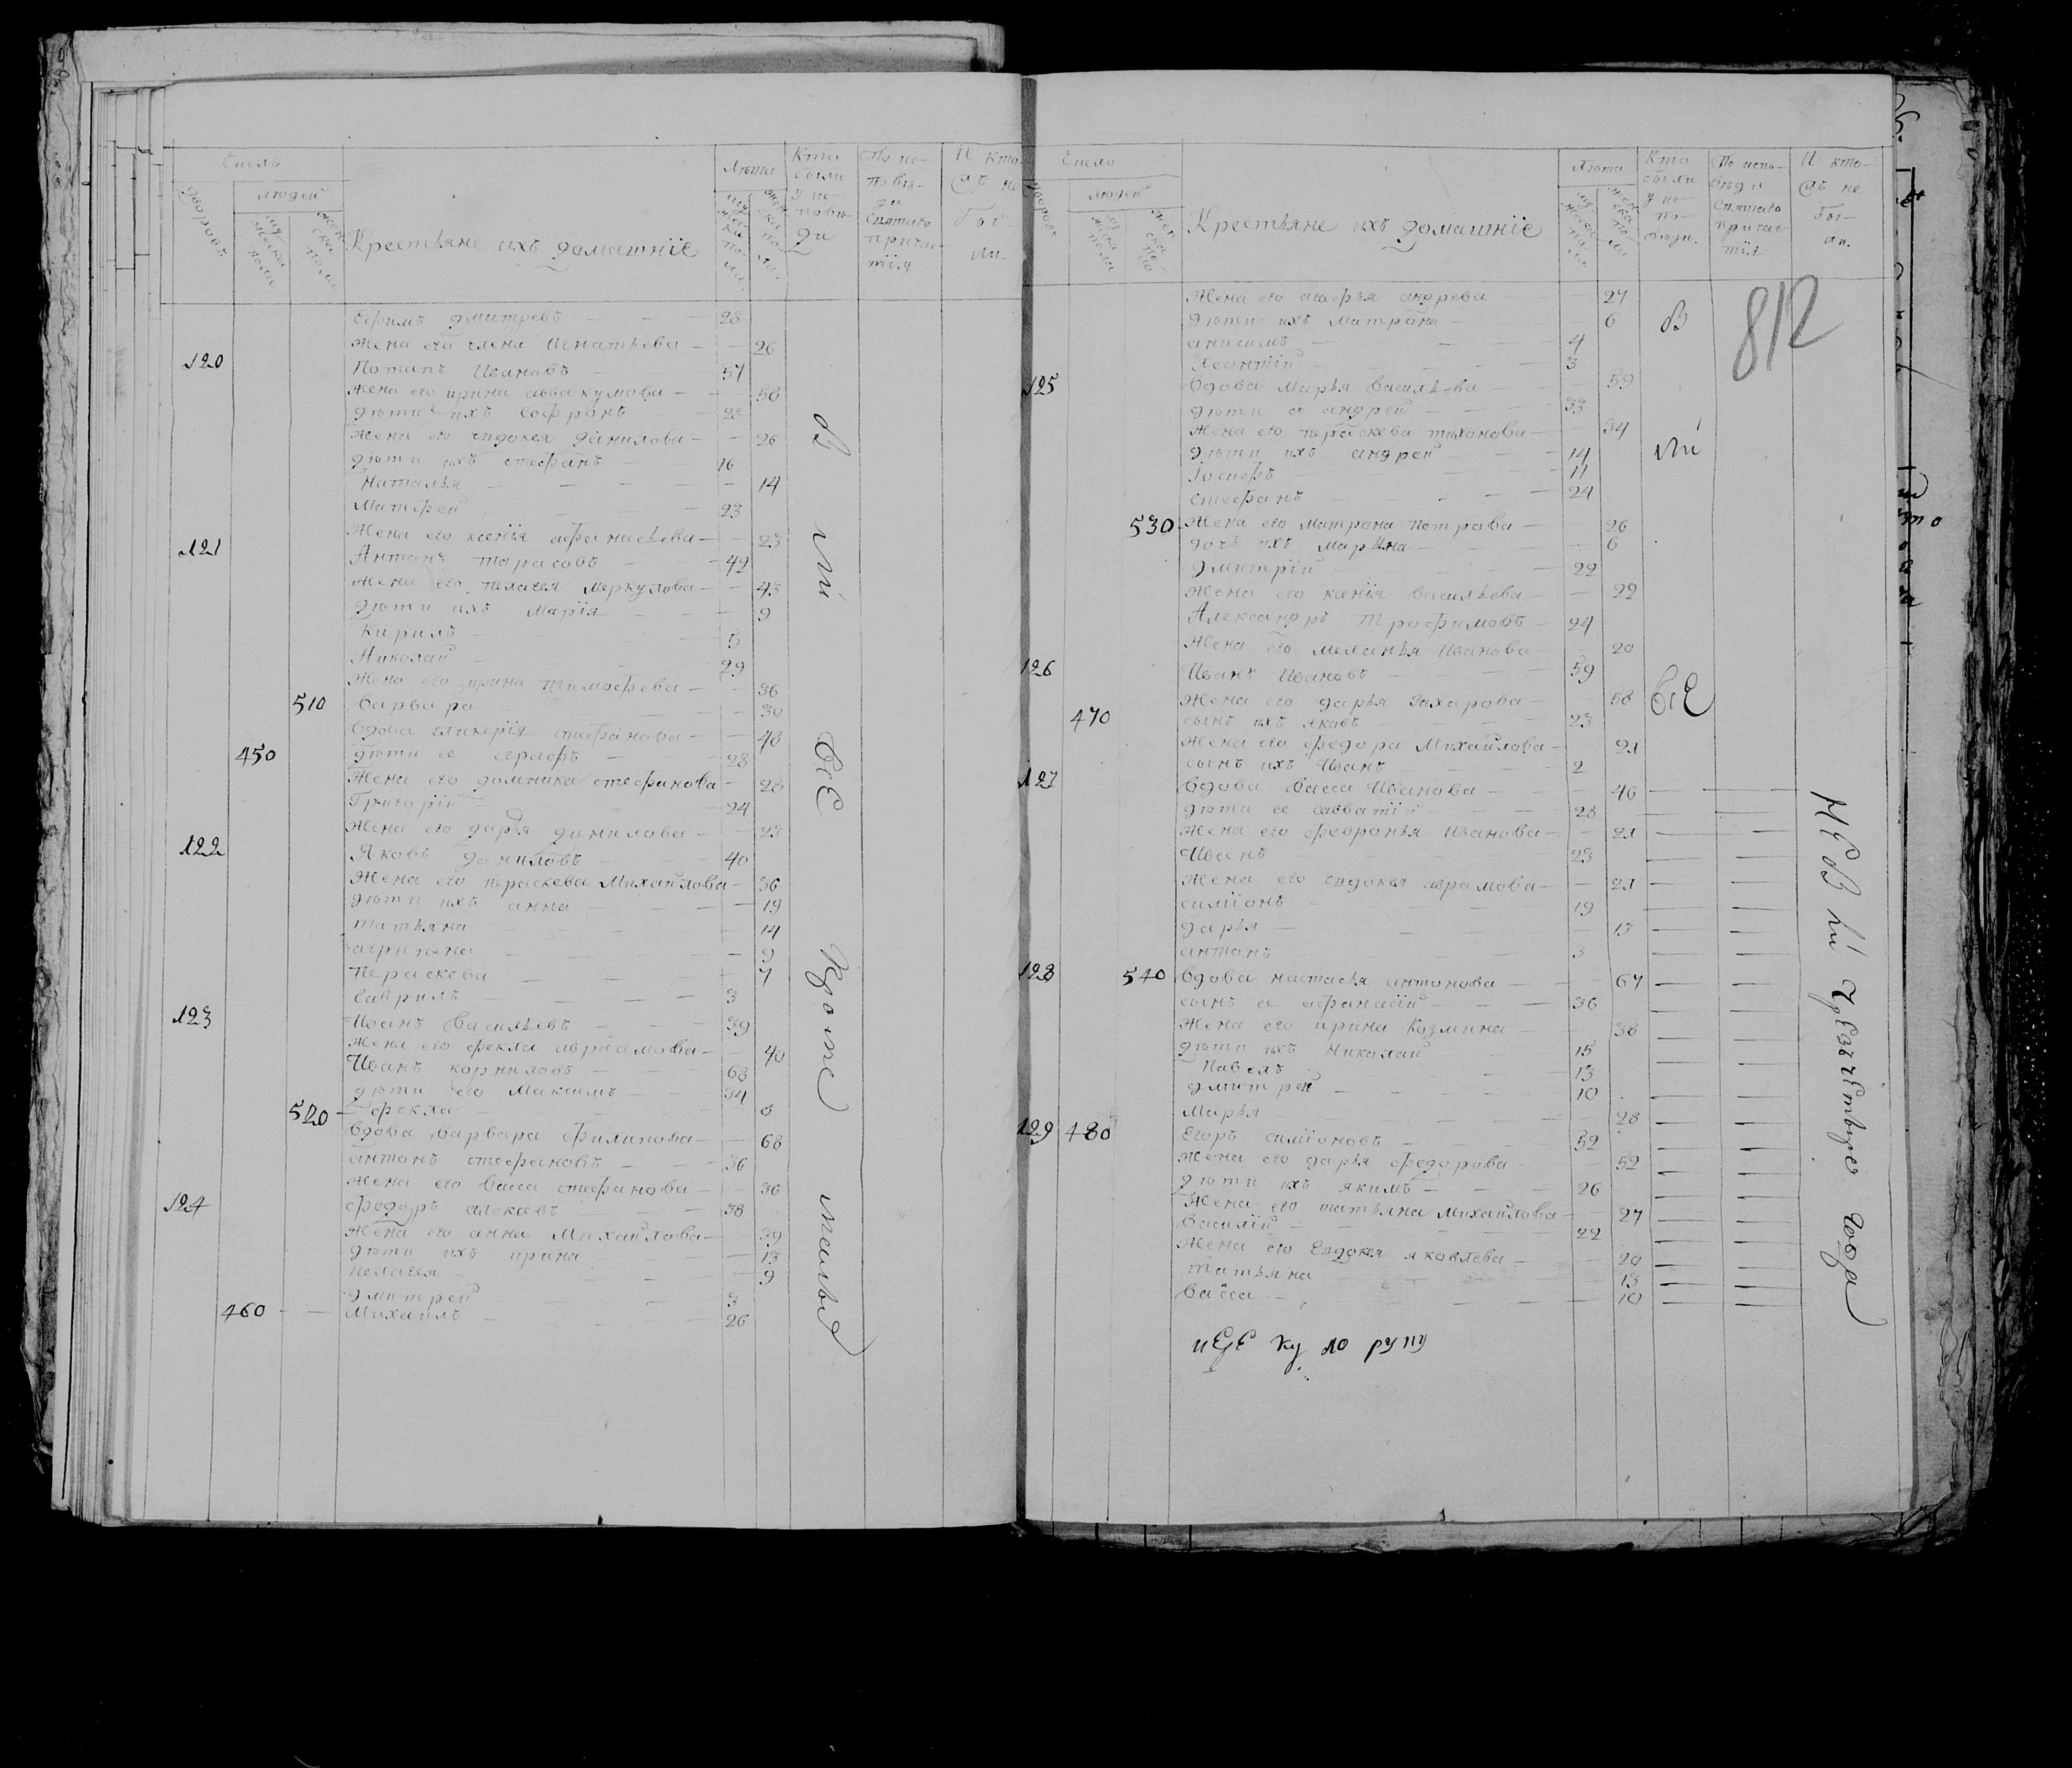 Число
Дворовъ
людей
Крестьяне ихъ домашнїе
Лѣта
Кто были у исповѣди
И когда не были.
Ефимъ дмитревъ 28
Жена его елена Игнатьева 26
120 Потапъ Ивановъ 57
Жена его ирина аввакумова 58
дѣти ихъ Софронъ 23
Жена его евдокея данилова 26
дѣти ихъ стефанъ
Наталья 14
Матфей 23
Жена его ксенїя афанасьева 23
121 Антонъ тарасовъ 49
Жена его пелагея меркулова 43
дѣти ихъ Марїя 9
Кирилъ 5
Николай 29
Жена его ирина тимофева 36
510 варвара 30
вдова гликерїя стефанова 48
450 дѣти ее 28
Жена его домника стефанова 28
Григорїй 24
Жена его дарья данилова 23
122 Яковъ даниловъ 40
Жена его параскева Михайлова 36
дѣти ихъ анна 19
татьяна 14
9
Параскева 7
Гаврилъ 3
123 Иванъ Васильевъ 39
Жена его фекла авраамова 40
Иванъ корниловъ 63
дѣти его Максимъ 34
520 фекла 8
вдова варвара филипова 68
антонъ стефановъ 36
Жена его васса стефанова 36
124 федоръ алексевъ 38
Жена его анна Михайлова 39
дѣти ихъ ирина 13
пелагея 9
дмитрей 3
460 Михаилъ 26
всЕ
Число
Дворовъ
людей
Крестьяне ихъ домашнїе
Лѣта
Кто были у исповѣди.
По исповѣди святаго причастїя
И когда не были.
812
Жена его агафья андрева 27
дѣти ихъ матрона 6
анисимъ 4
Леонтїй 3
125 вдова Марья Васильева 59
дѣти ее андрей 33
Жена его параскева тихонова 34
дѣти ихъ андрей 14
Іосифъ 11
стефанъ 24
530 Жена его матрона петрова 26
дочь ихъ марина 6
дмитрїй 22
Жена его ксенїя Васильева 22
Александръ трофимовъ 24
Жена его меланья Иванова 20
126 Иванъ Ивановъ 59
Жена его дарья Захарова 58
470 сынъ ихъ яковъ 23
Жена его федора Михайлова 21
сынъ ихъ Иванъ 2
127 вдова васса Иванова 46
дѣти ее савватїй 28
Жена его февронья Иванова 21
Иванъ 23
Жена его евдокея аврамова 21
симїонъ 19
дарья 13
антонъ 3
128 540 вдова настасья антонова 67
сынъ ее афанасїй 36
Жена его ирина Козмина 38
дѣти ихъ николай 15
Павелъ 13
дмитрей 10
Марья 28
129 480 Егоръ симїоновъ 52
Жена его дарья федорова 52
дѣти ихъ якимъ 26
Жена его татьяна Михайлова 27
василїй 22
Жена его Евдокея яковлева 20
татьяна 13
васса 10
всЕ